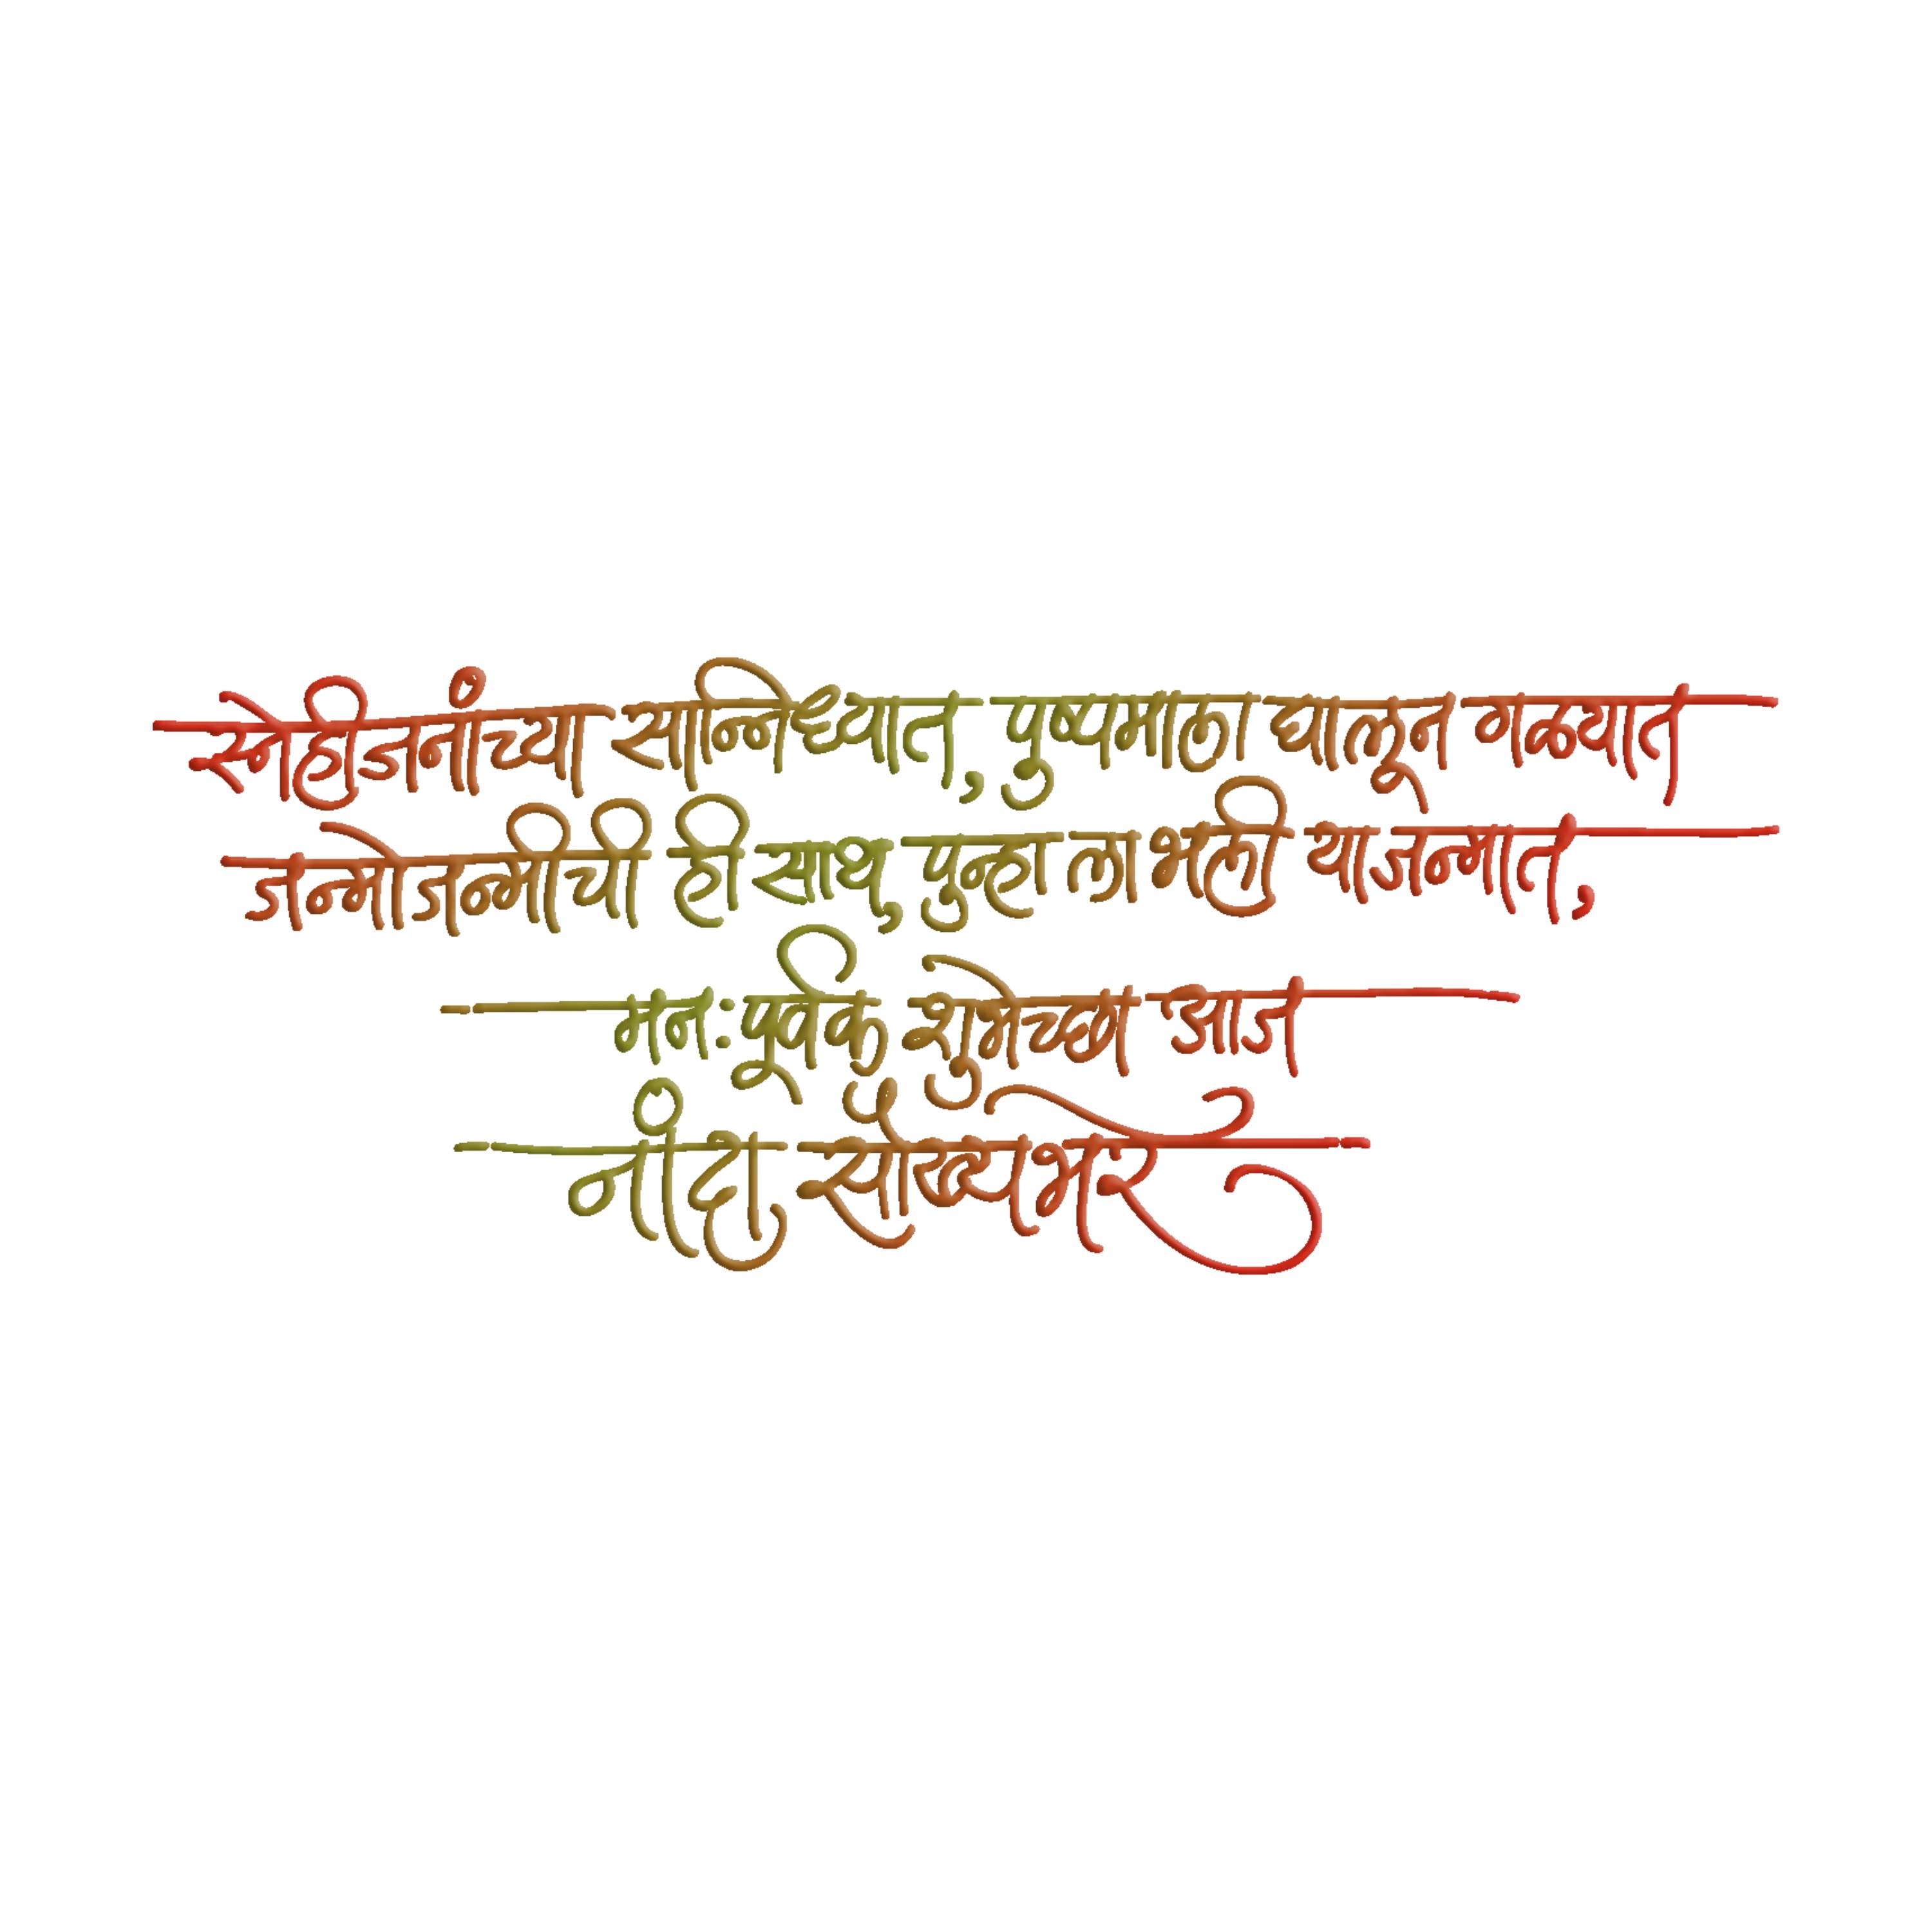 स्नेहीजनांच्या सान्निध्यात, पुष्पमाला घालून गळयात
जन्मोजन्मीची ही साथ, पुन्हा लाभली या जन्मात,
मनःपूर्वक शुभेच्छा आज
नांदा सौख्यभरे